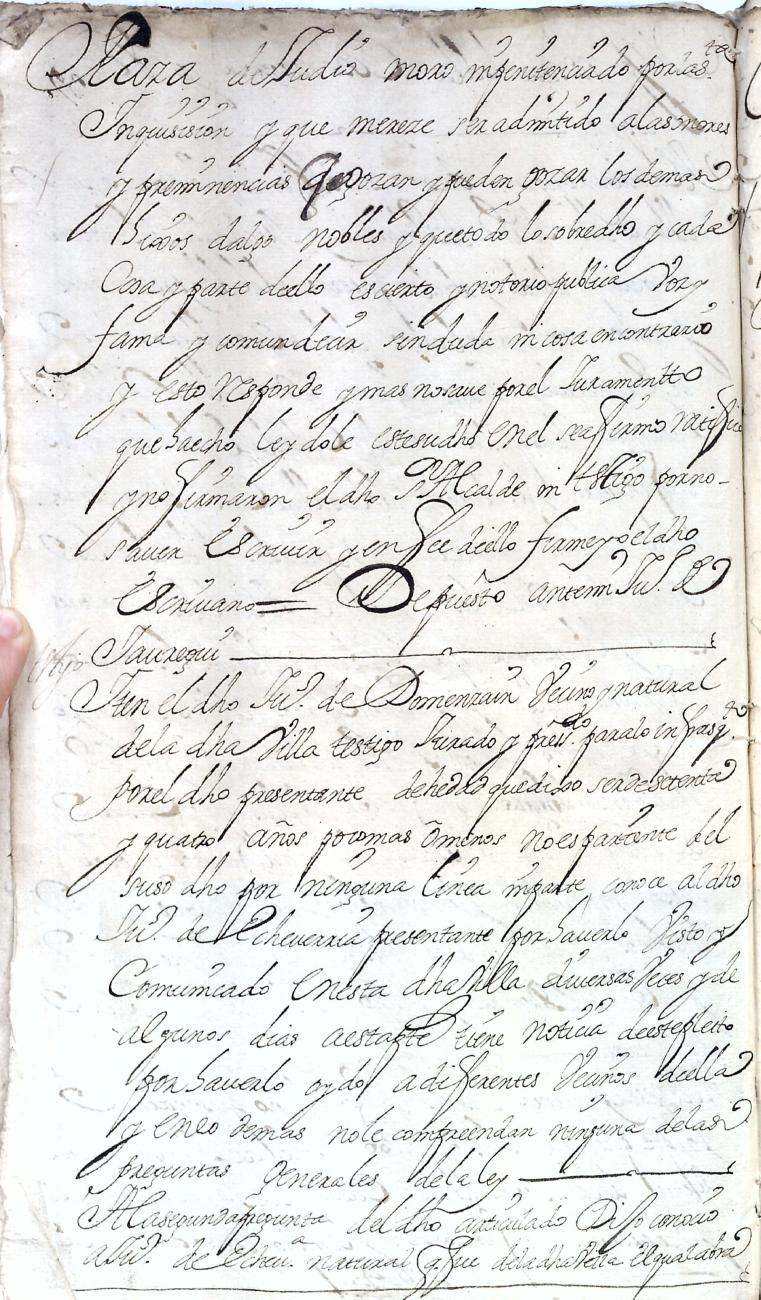 Raza de Judio moro ni penitenciado por la sta
Inquisicion y que mereze ser admitido a las onores
y preminencias que gozan y pueden gozar los demas
hijos dalgo nobles y que todo lo sobredho y cada
Cosa y parte dello es cierto y notorio publica voz y
fama y comun decir sin duda ni cosa en contrario
y esto Responde y mas no save por el Juramentto
que ha echo leydole este su dho en el se affirmo Ratiffico
y no firmaron el dho Alcalde ni testigo por no
saver Escrivir y en ffee dello firme yo el dho
Escrivano = Depuesto ante mi Ju.º de
Jauregui
Iten el dho Ju.º de Domenzain Vecino y natural
de la dha Villa testigo Jurado y press.do para lo infraesq.to
por el dho presentante de hedad que dijo ser de setenta
y quatro años poco mas o menos no es pariente del
suso dho por ninguna linea ni parte conoce al dho
Ju.º de Echeverria presentante por haverlo Visto y
Comunicado en esta dha Villa diversas Veces y de
algunos dias a esta parte tiene noticia de este pleito
por haverlo oydo a differentes Vecinos della
y en lo demas no le compreendan ninguna de las
preguntas Generales de la ley
A la segunda pregunta del dho articulado Dijo conocio
a Ju.º de Echeu.a natural q fue de la dha Villa el qual abra